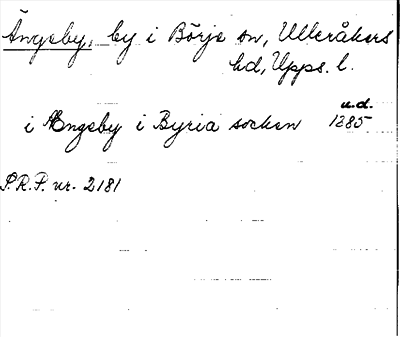 Ängeby, by i Börje sn, Ulleråkers
hd, Upps. l.
u.d.
i Ængeby i Byria socken 1885
S.R.P. nr. 2181